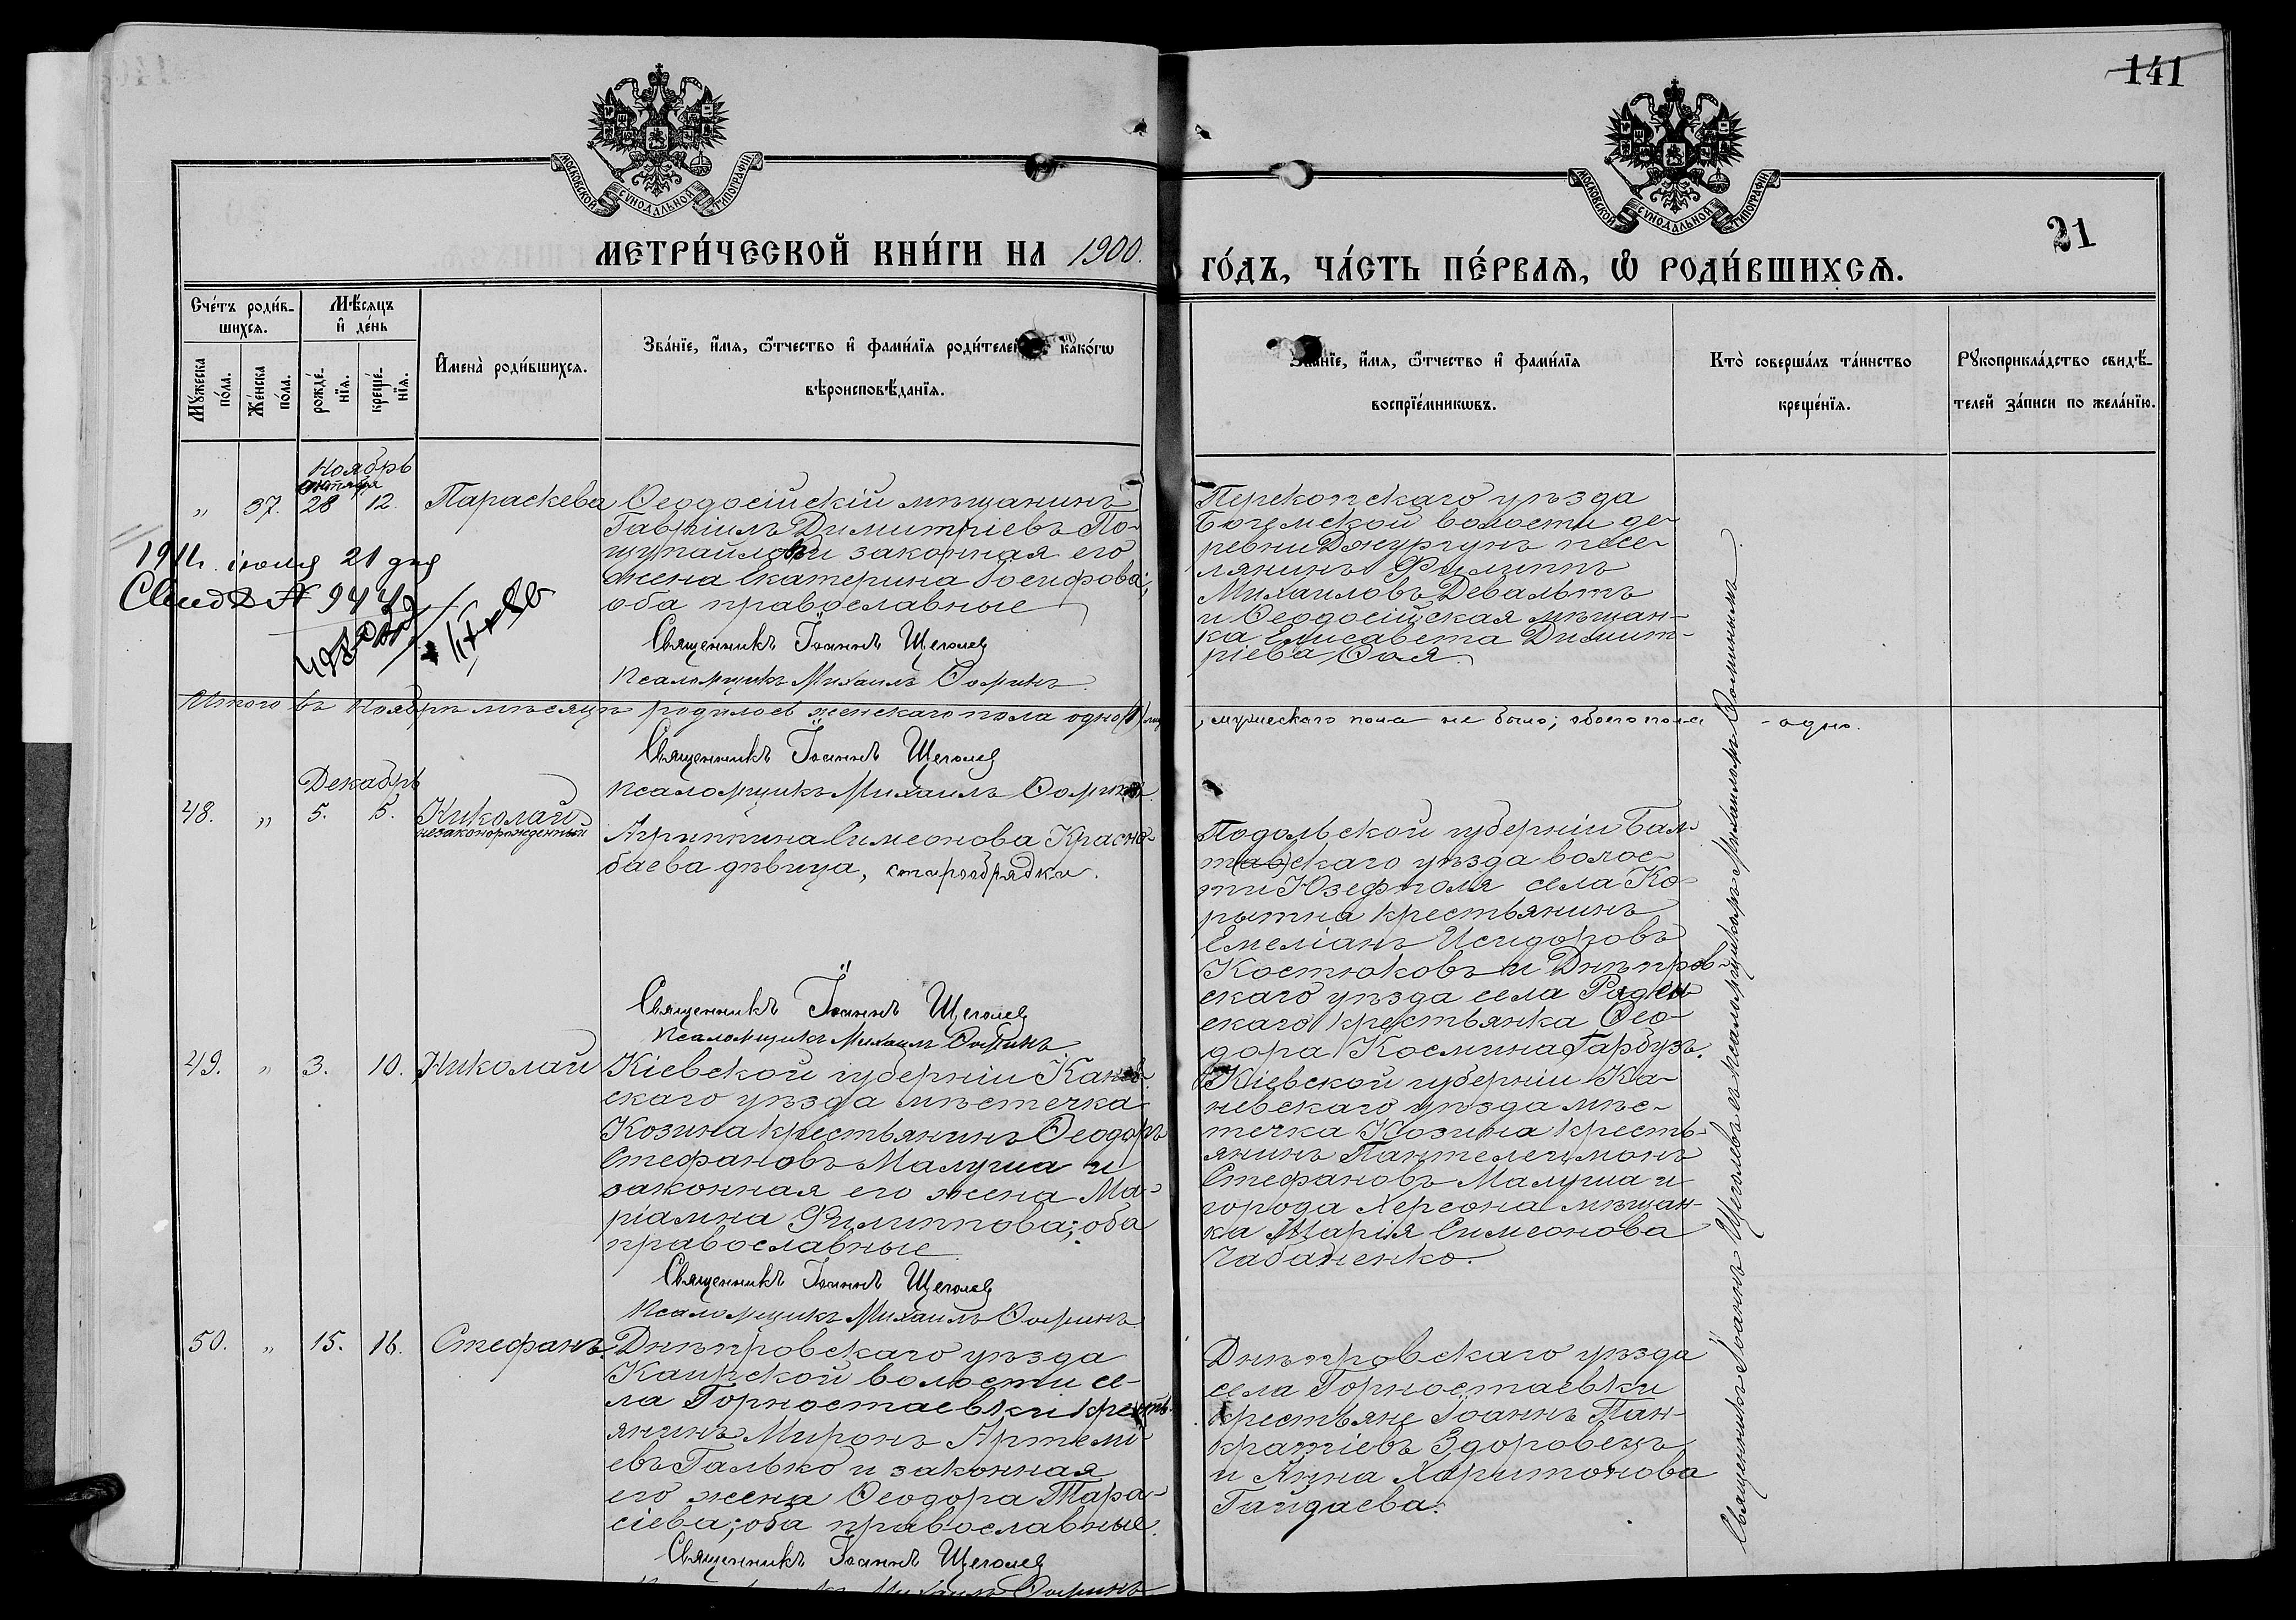 141
МОСКОВСКОЙ СѴНОДАЛЬНОЙ ТИПОГРАФІИ
МОСКОВСКОЙ СѴНОДАЛЬНОЙ ТИПОГРАФІИ
21
МЕТРИ́ЧЕСКОЙ КНИ́ГИ НА 1900.
ГО́ДЪ, ЧА́СТЬ ПЕ́РВАЯ, Ѽ РОДИ́ВШИХСЯ.
Сче́тъ роди́в-
шихся.
Мꙋ́жеска
по́ла.
Же́нска
по́ла.
Мѣ́сяцъ
и҆ де́нь
рожде́-
нїя.
креще́-
нїя.
И҆мена̀ роди́вшихся.
Зва́нїе, и҆́мя, ѻ҆́тчество и҆ фами́лїя роди́телей како́гѡ
вѣроисповѣ́данїя.
Зва́нїе, и҆́мя, ѻ҆́тчество и҆ фами́лїя
воспрїе́мникѡвъ.
Кто̀ соверша́лъ та́инство
креще́нїя.
Рꙋкоприкла́дство свидѣ́-
телей за́писи по жела́нїю.
Ноябрь
октября
„ 37. 28 12. Параскева
Ѳеодосійскій мѣщанинъ
Гавріилъ Димитріевъ По-
законная его
жена Екатерина Іосифова;
оба православные
Священникъ Іоаннъ Щеголев
Псаломщикъ Михаилъ Ѳоминъ
1911г. іюня 21 дня
Свид № 944
Перекопскаго уѣзда
Богемской волости де-
ревни Джургунъ посе-
лянинъ Филиппъ
Михаиловъ Девальтъ
и Ѳеодосійская мѣщан-
ка Елисавета Димит-
ріева
Итого въ Ноябрѣ мѣсяцѣ родилось женскаго пола одно (1)
, мужескаго пола не было; обоего пола - одно.
Священникъ Іоаннъ Щеголев
Псаломщикъ Михаилъ Ѳоминъ
Декабрь
48. „ 5. 5. Николай
незаконорожденный
Агриппина Симеонова Красно-
баева дѣвица, старообрядка.
Священникъ Іоаннъ Щеголев
Псаломщикъ Михаилъ Ѳоминъ
Подольской губерніи Бал-
т(ав)скаго уѣзда волос-
ти Юзефполя села Ко-
рытна крестьянинъ
Емеліанъ Исидоровъ
Костюковъ и Днѣпров-
скаго уѣзда села Раден-
скаго крестьянка Ѳео-
дора Космина Гарбузъ.
49. „ 3. 10. Николай
Кіевской губерніи Канев-
скаго уѣзда мѣстечка
Козина крестьянинъ Ѳеодоръ
Стефановъ Малуша и
законная его жена Ма-
ріамна Филиппова; оба
православные
Священникъ Іоаннъ Щеголев
Псаломщикъ Михаилъ Ѳоминъ
Кіевской губерніи Ка-
невскаго уѣзда мѣс-
течка Козина кресть-
янинъ Пантелеимонъ
Стефановъ Малуша и
города Херсона мѣщан-
ка Марія Симеонова
Чабаненко.
50. „ 15. 16. Стефанъ
Днѣпровскаго уѣзда
Каирской волости се-
ла Горностаевки кресть-
янинъ Миронъ Артемі-
евъ Галько и законная
его жена Ѳеодора Тара-
сіева; оба православные.
Священникъ Іоаннъ Щеголев
Михаилъ Ѳоминъ
Днѣпровскаго уѣзда
села Горностаевки
крестьяне Іоаннъ Пан-
кратіевъ Здоровецъ
и Анна Харитонова
Гайдаева.
Священникъ Іоаннъ Щеголевъ съ псаломщикомъ Михаиломъ Ѳоминымъ.